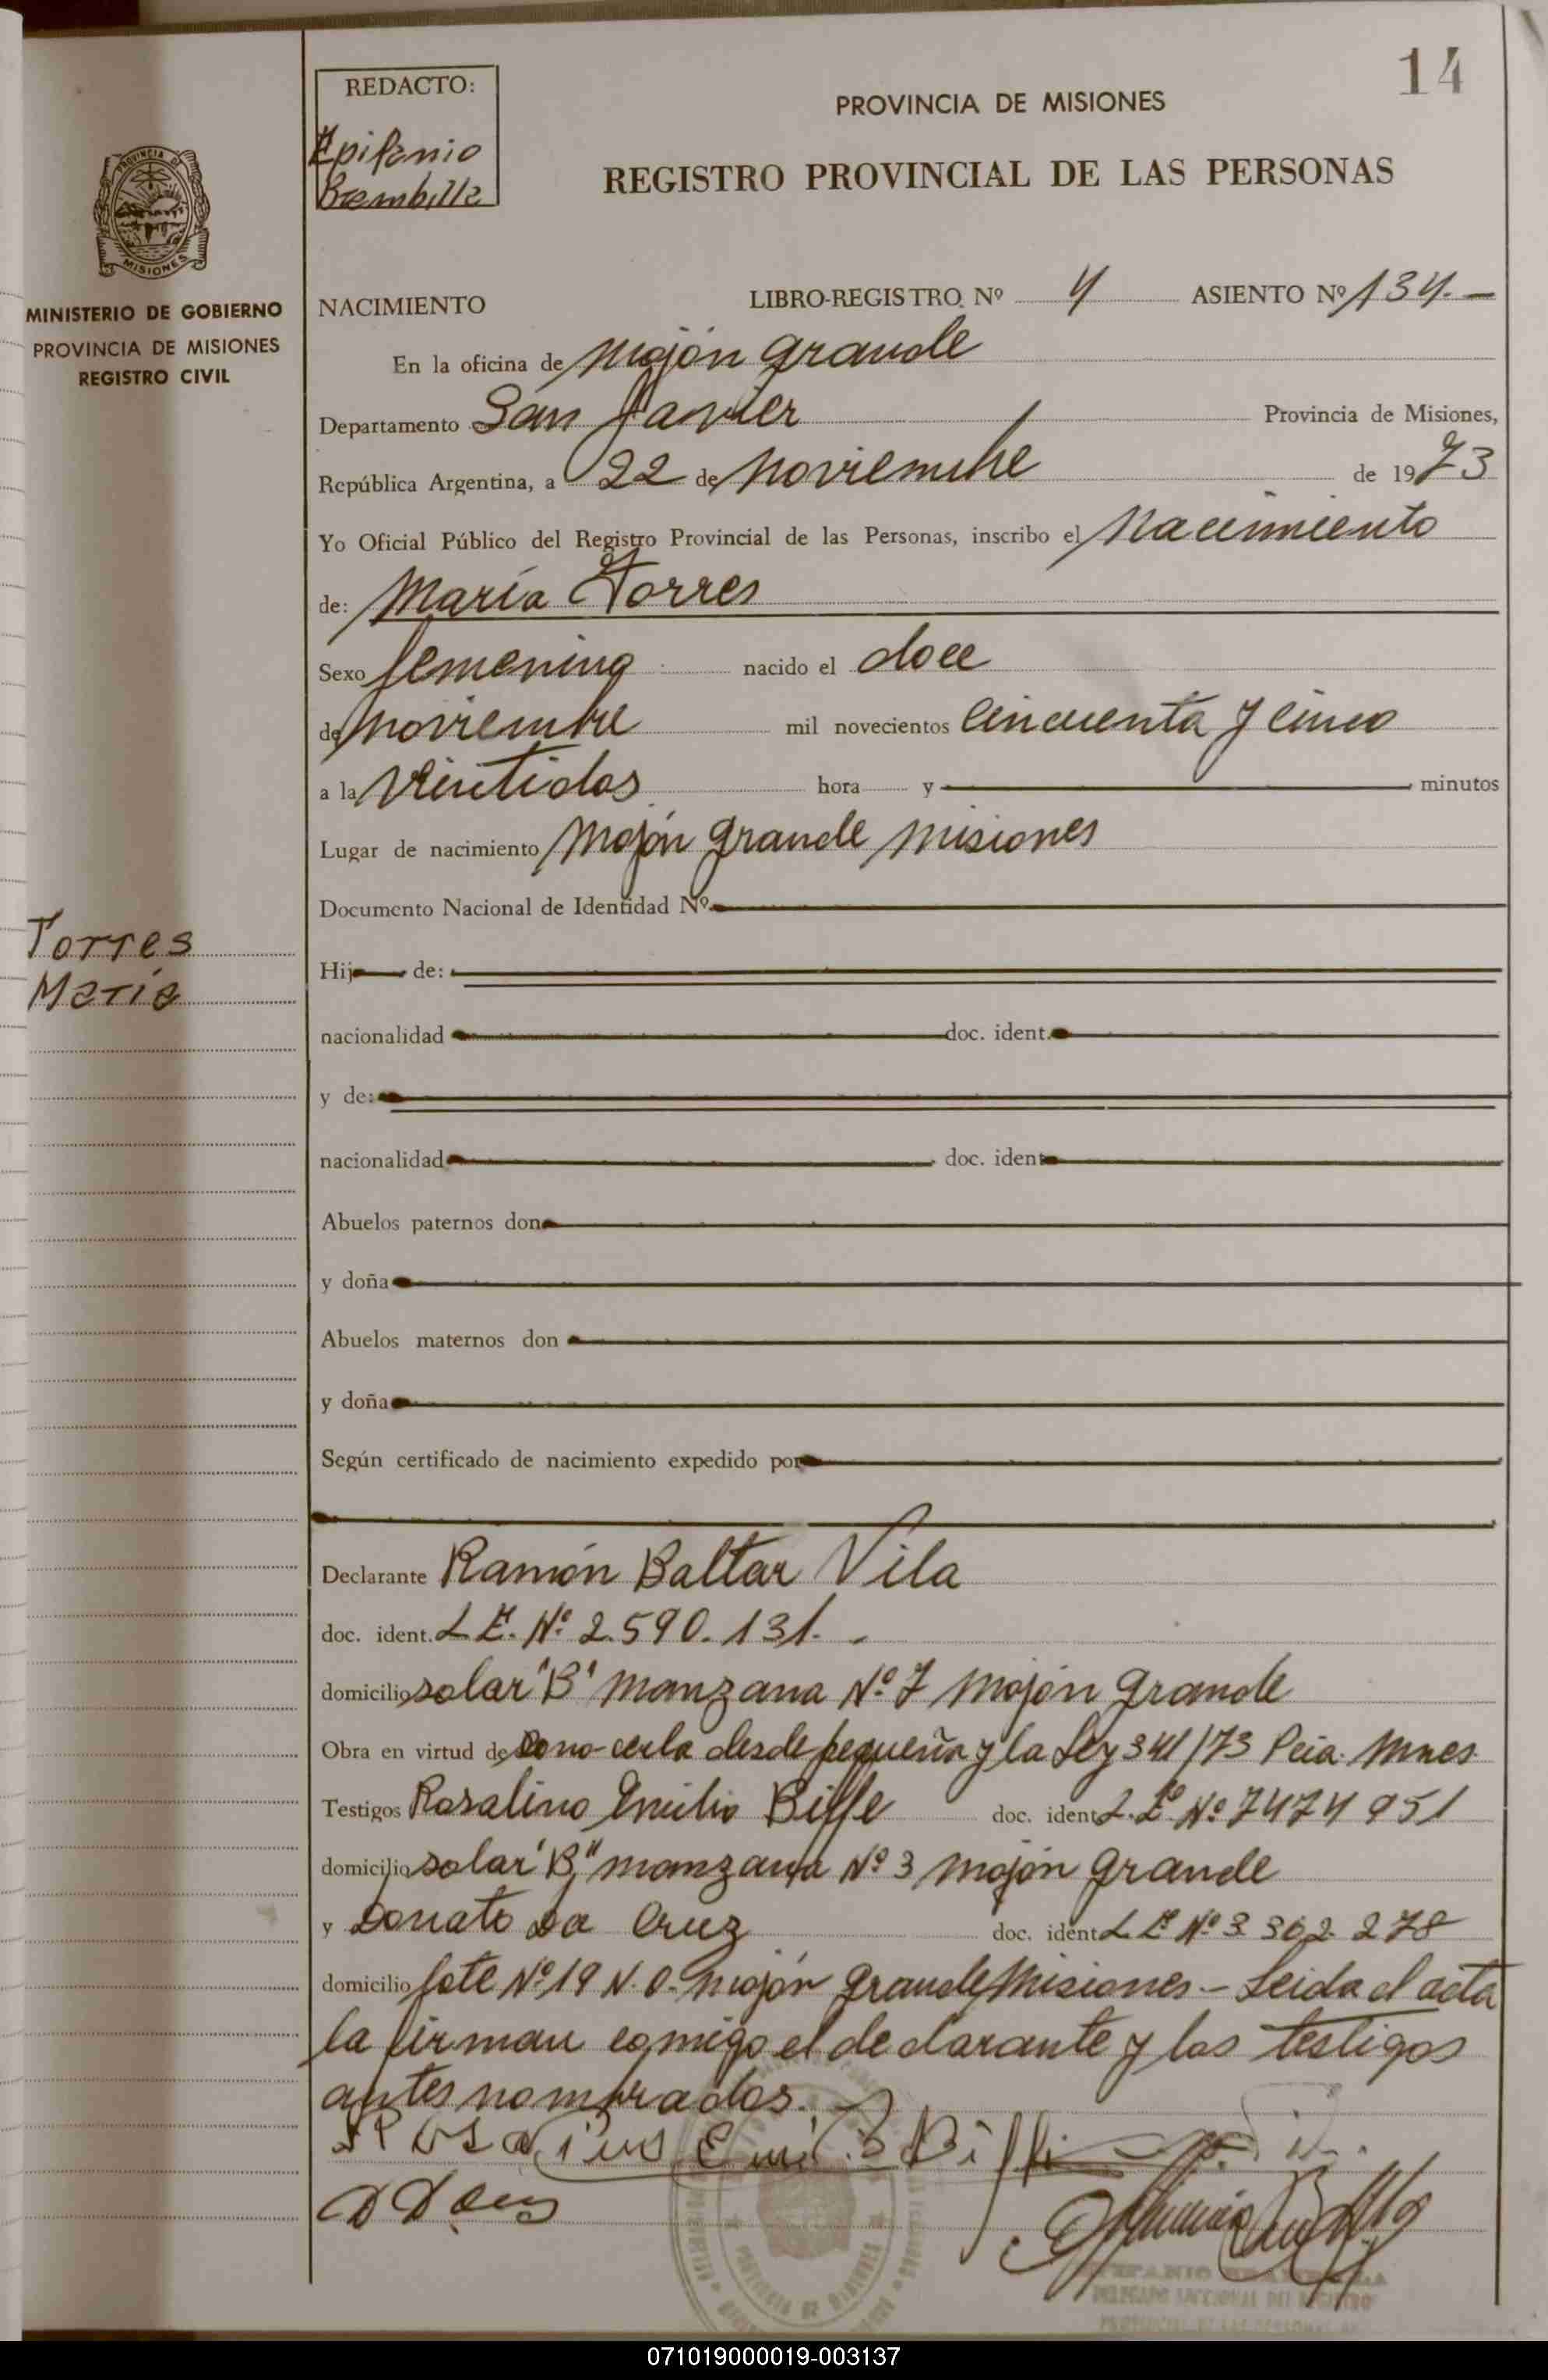 14
REDACTO:
Epifanio
Brambilla
PROVINCIA DE MISIONES
REGISTRO PROVINCIAL DE LAS PERSONAS
PROVINCIA DE
MISIONES
MINISTERIO DE GOBIERNO
PROVINCIA DE MISIONES
REGISTRO CIVIL
NACIMIENTO LIBRO-REGISTRO Nº 4 ASIENTO Nº 134.-
En la oficina de Mojón Grande
Departamento San Javier Provincia de Misiones,
República Argentina, a 22 de Noviembre de 1973
Yo Oficial Público del Registro Provincial de las Personas, inscribo el Nacimiento
de: María Torres
Sexo femenino nacido el doce
de noviembre mil novecientos cincuenta y cinco
a la veintidos hora y minutos
Lugar de nacimiento Mojón Grande Misiones
Documento Nacional de Identidad Nº
Torres
María
Hij de:
nacionalidad doc. ident.
y de:
nacionalidad doc. ident.
Abuelos paternos don
y doña
Abuelos maternos don
y doña
Según certificado de nacimiento expedido por
Declarante Ramón Baltar Vila
doc. ident. L E. Nº 2.590.131.-
domicilio solar "B" manzana Nº 7 Mojón Grande
Obra en virtud de cono-cerla desde pequeña y la Ley 341/73 Pcia. Mnes.
Testigos Rosalino Emilio Biffe doc. ident. L.E Nº 7474951
domicilio solar "B" manzana Nº 3 Mojón Grande
y Donato Da Cruz doc. ident. L E Nº 3 302.278
domicilio lote Nº 19 N.O. Mojón Grande Misiones.- Leida el acta
la firman comigo el declarante y los testigos
antes nombrados.
PROVINCIA DE MISIONES
DELEGADO SECCIONAL DEL REGISTRO
PROVINCIAL DE LAS PERSONAS
071019000019-003137